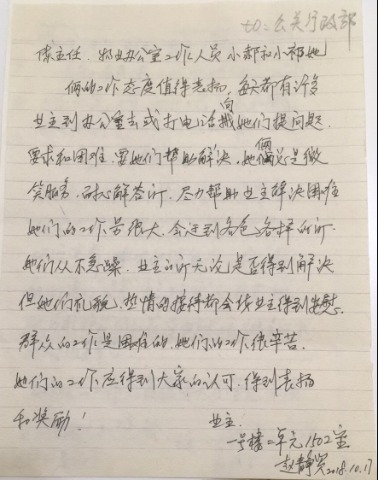 to:公关行政部
陈主任,物业办公室工作人员小郝和小祁她
俩的工作态度值得表扬,每天都有许多
业主到办公室去或打电话向她们提问题.
要求和困难.要她们帮助解决,她俩总是微
笑服务,耐心解答 尽力帮助业主解决困难
她们的工作量很大.会迁到各色各样的
她们从不急躁.业主的 无论是否得到解决
但她们礼貌.热情的接待都会给业主得到安慰.
群众的工作是困难的.她们的工作很辛苦.
她们的工作应得到大家的认可.得到表扬
和奖励!
业主:
一号楼二单元1502室
赵静 2018.10.17